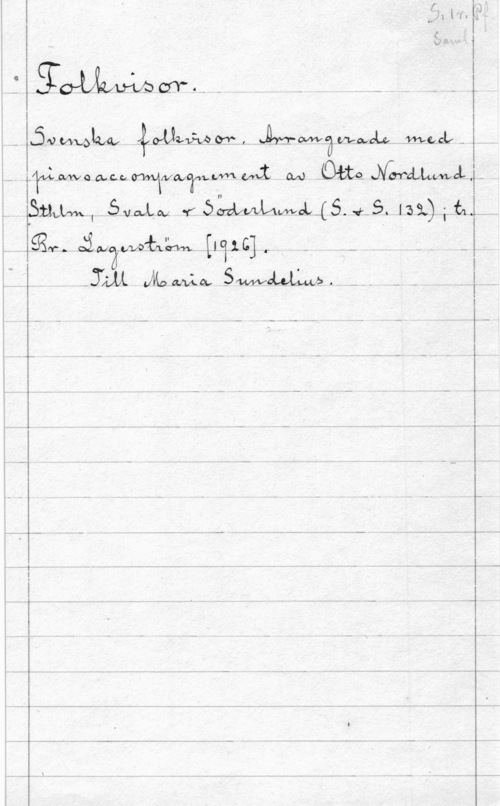 S. 1 r. Pf
Saml.
Folkvisor.
Svenska folkvisor. Arrangerade med
pianoaccompagnement av Otto Nordlund.
Sthlm, Svala & Söderlund (S. & S. 132); tr.
Br. Lagerström [1926].
Till Maria Sundelius.